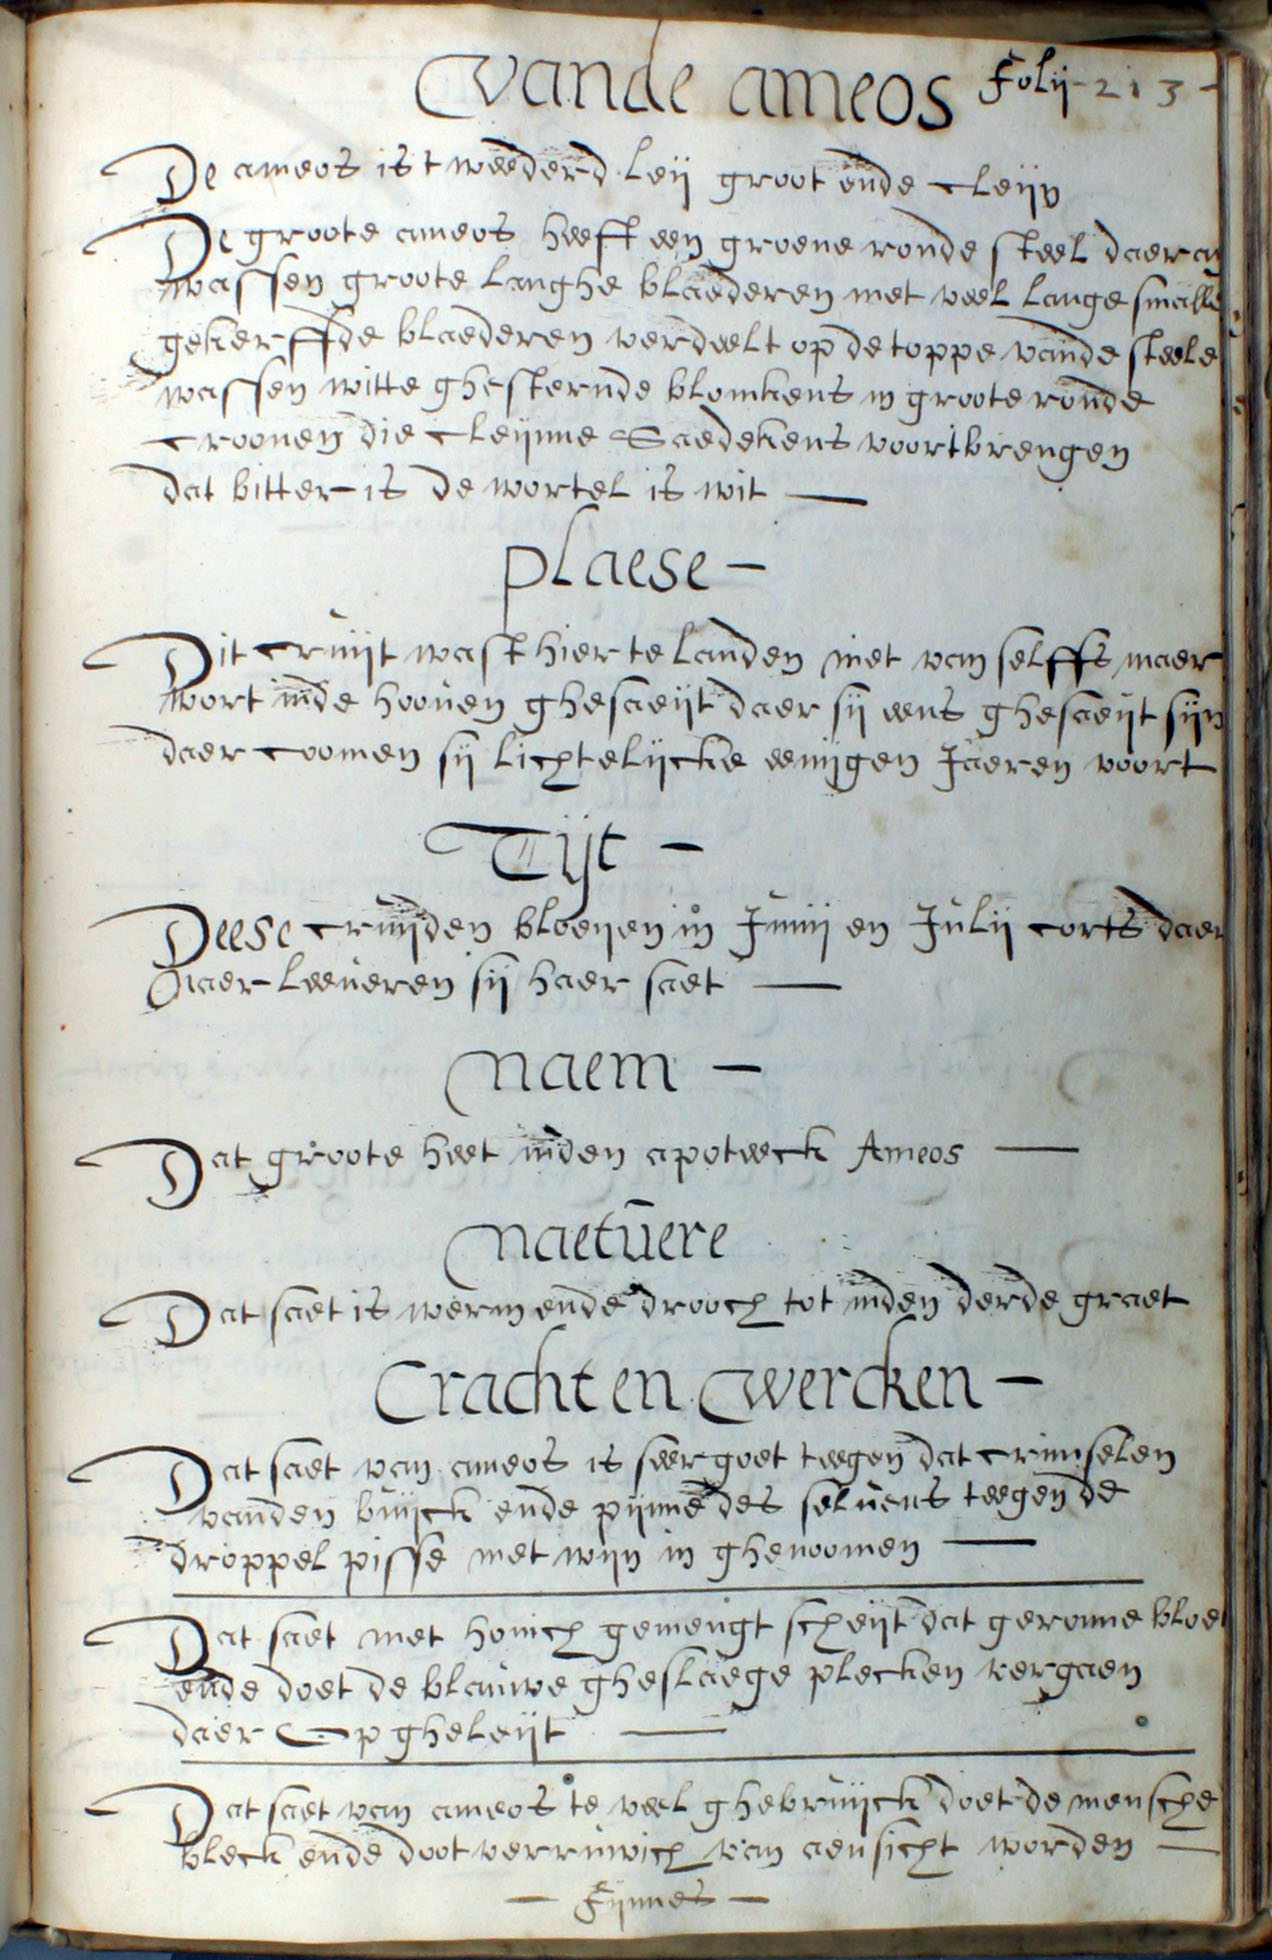 Vande ameos Folij-213-
De ameos is tweederd leij groot ende cleijn
De groote ameos heeft een groene ronde steel daer an
wassen groote langhe blaederen met veel lange smalle
gekerffde blaederen verdeelt op de toppe vande steele
wassen witte ghesternde blomkens in groote ronde
croonen die cleijnne Saedekens voortbrengen
dat bitter is de wortel is wit —
plaese —
Dit cruijt wast hier te landen niet van selffs maer
wort inde hooven ghesaeijt daer sij eens ghesaeijt sijn
daer coomen sij lichtelijcke eenijgen Jaeren voort
Tijt —
Deese cruijden bloeijen in Junij en Julij corts daer
Naer leeveren sij haer saet —
Naem —
Dat groote heet inden apoteeck Ameos —
Naetuere
Dat saet is werm ende drooch tot inden derde graet
Cracht en Wercken —
Dat saet van ameos is seer goet teegen dat crimselen
vanden buijck ende pijnne des selvens teegen de
droppel pisse met wijn in ghenoomen —
Dat saet met honich gemengt scheijt dat geronne bloet
ende doet de blauwe gheslaege plecken vergaen
daer Op gheleijt —
Dat saet van ameos te veel ghebruijck doet de mensche
bleck ende doot verruwich van aensicht worden —
— Fijnnes —